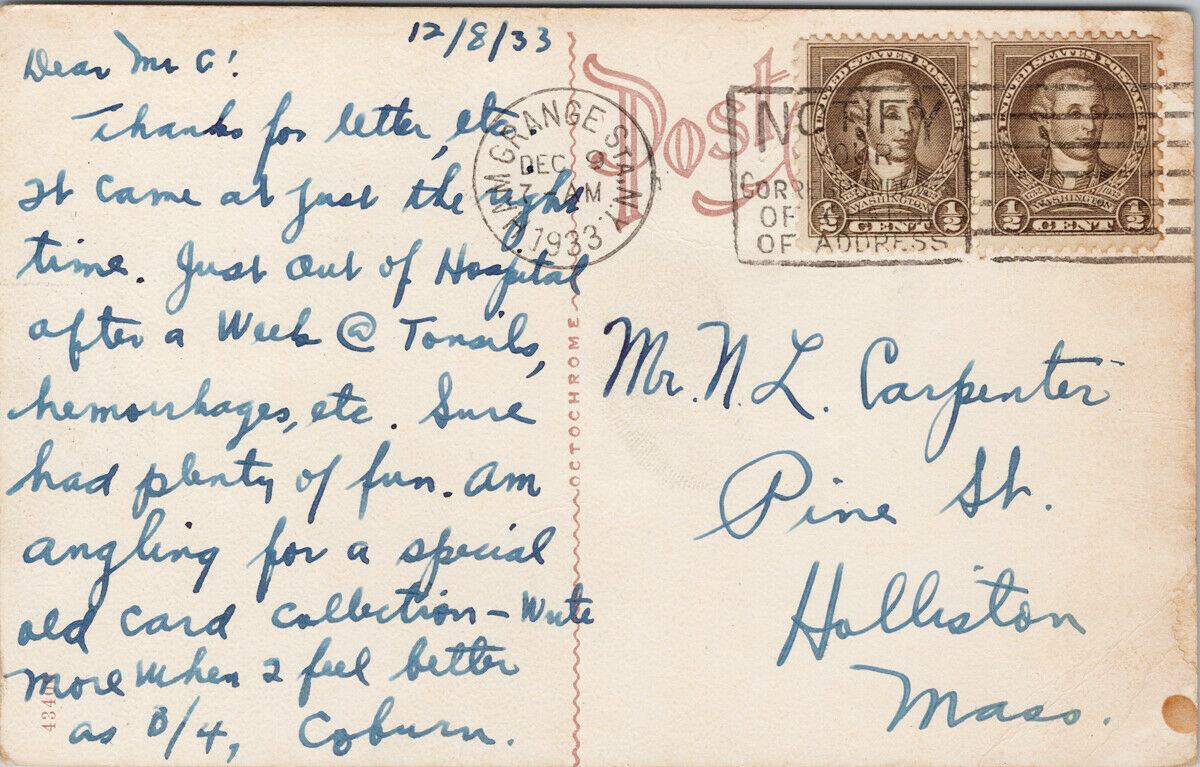 12/8/33
Dear Mr C!
Thanks for letter, etc
It came at just the right
time. Just out of Hospital
after a Week @ Tonsils,
hemorrhages, etc. Sure
had plenty of fun. Am
angling for a special
old card collection – Write
more when I feel better
as B/4, Coburn.
43401
OCTOCHROME
Post
HAM GRANGE STA. N.Y.
DEC 9
7 AM
1933
NOTIFY
YOUR
CORRESPONDENTS
OF
OF ADDRESS
UNITED STATES POSTAGE
WASHINGTON
1/2 CENT 1/2
UNITED STATES POSTAGE
WASHINGTON
1/2 CENT 1/2
Mr. N. L. Carpenter
Pine St.
Holliston
Mass.